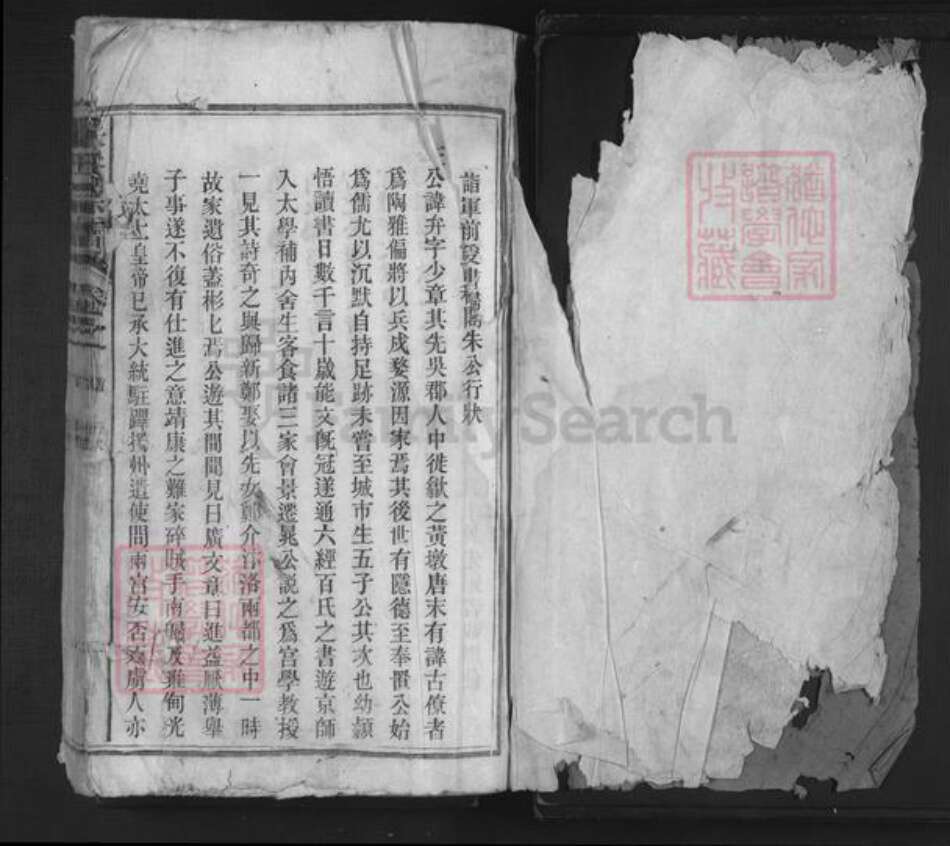 公行狀
公諱弁字少章其先吳郡人中徙歙之黃墩唐末有諱古僚者
爲陶雅偏將以兵戍婺源因家焉其後世有隱德至奉議公始
爲儒尤以沉默自持足跡未嘗至城市生五子公其次也幼穎
悟讀書日數千言十歲能文旣冠遂通六經百氏之書遊京師
入太學補內舍生客食諸王家會景遷晁公說之爲宮學教授
一見其詩奇之與歸新鄭娶以先女鄭介汴洛兩都之中一時
故家遺俗蓋彬比焉公遊其間聞見日廣文章日進益厭薄舉
子事遂不復有仕進之意靖康之難家碎賊手南
堯太上皇帝已承大統駐蹕揚州遣使問兩宮安否
FamilySearch